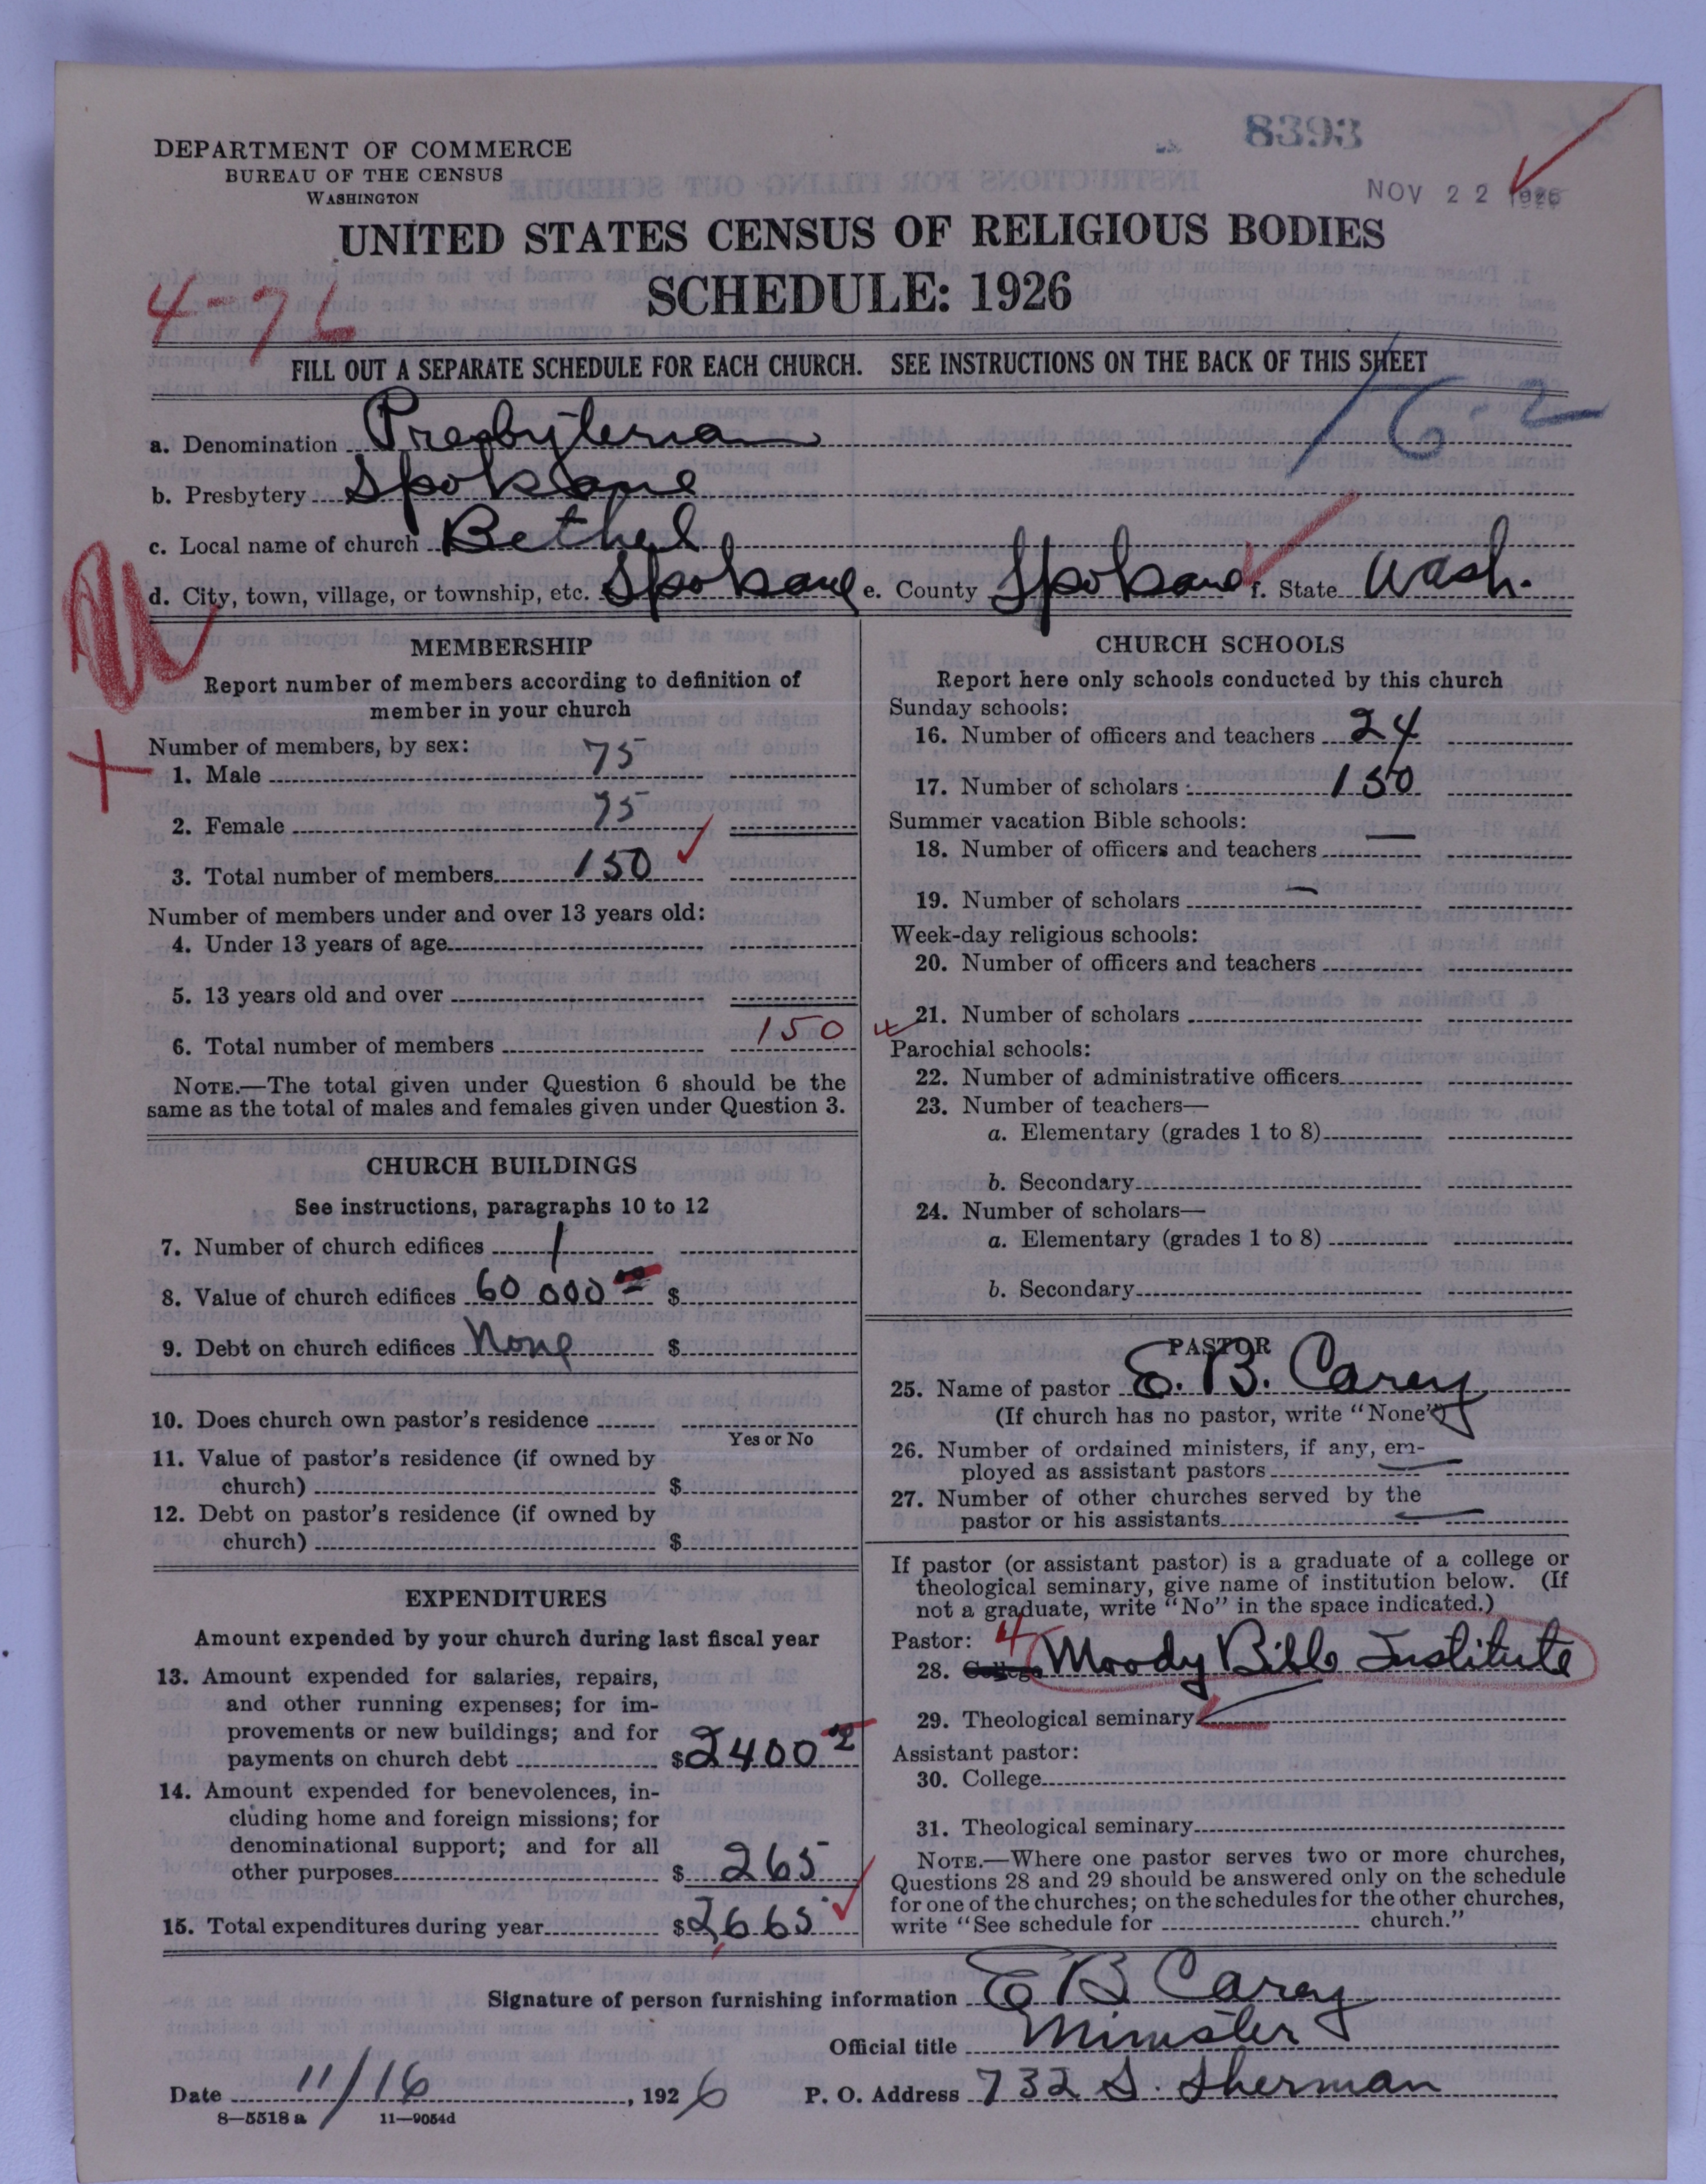 8393
NOV 22 1926
DEPARTMENT OF COMMERCE
BUREAU OF THE CENSUS
WASHINGTON
UNITED STATES CENSUS OF RELIGIOUS BODIES
SCHEDULE: 1926
4-76
FILL OUT A SEPARATE SCHEDULE FOR EACH CHURCH. SEE INSTRUCTIONS ON THE BACK OF THIS SHEET
16-2
a. Denomination Presbyterian
b. Presbytery Spokane
c. Local name of church Bethel
d. City, town, village, or township, etc. Spokane e. County Spokane f. State Wash.
MEMBERSHIP
Report number of members according to definition of
member in your church
Number of members, by sex:
1. Male 75
2. Female 75
3. Total number of members 150
Number of members under and over 13 years old:
4. Under 13 years of age
5. 13 years old and over
6. Total number of members 150
NOTE.—The total given under Question 6 should be the
same as the total of males and females given under Question 3.
CHURCH BUILDINGS
See instructions, paragraphs 10 to 12
7. Number of church edifices 1
8. Value of church edifices 60 000 $
9. Debt on church edifices None $
10. Does church own pastor's residence
Yes or No
11. Value of pastor's residence (if owned by
church) $
12. Debt on pastor's residence (if owned by
church) $
EXPENDITURES
Amount expended by your church during last fiscal year
13. Amount expended for salaries, repairs,
and other running expenses; for im-
provements or new buildings; and for
payments on church debt $2400
14. Amount expended for benevolences, in-
cluding home and foreign missions; for
denominational support; and for all
other purposes $ 265
15. Total expenditures during year $2665
CHURCH SCHOOLS
Report here only schools conducted by this church
Sunday schools:
16. Number of officers and teachers 24
17. Number of scholars 150
Summer vacation Bible schools:
18. Number of officers and teachers —
19. Number of scholars —
Week-day religious schools:
20. Number of officers and teachers
21. Number of scholars
Parochial schools:
22. Number of administrative officers
23. Number of teachers—
a. Elementary (grades 1 to 8)
b. Secondary
24. Number of scholars—
a. Elementary (grades 1 to 8)
b. Secondary
PASTOR
25. Name of pastor E. B. Carey
(If church has no pastor, write "None")
26. Number of ordained ministers, if any, em-
ployed as assistant pastors —
27. Number of other churches served by the
pastor or his assistants —
If pastor (or assistant pastor) is a graduate of a college or
theological seminary, give name of institution below. (If
not a graduate, write "No" in the space indicated.)
Pastor: 4
28. College Moody Bible Institute
29. Theological seminary
Assistant pastor:
30. College
31. Theological seminary
NOTE.—Where one pastor serves two or more churches,
Questions 28 and 29 should be answered only on the schedule
for one of the churches; on the schedules for the other churches,
write "See schedule for church."
Signature of person furnishing information E B Carey
Official title Minister
Date 11/16, 1926 P. O. Address 732 S. Sherman
8—5518 a 11—9054d